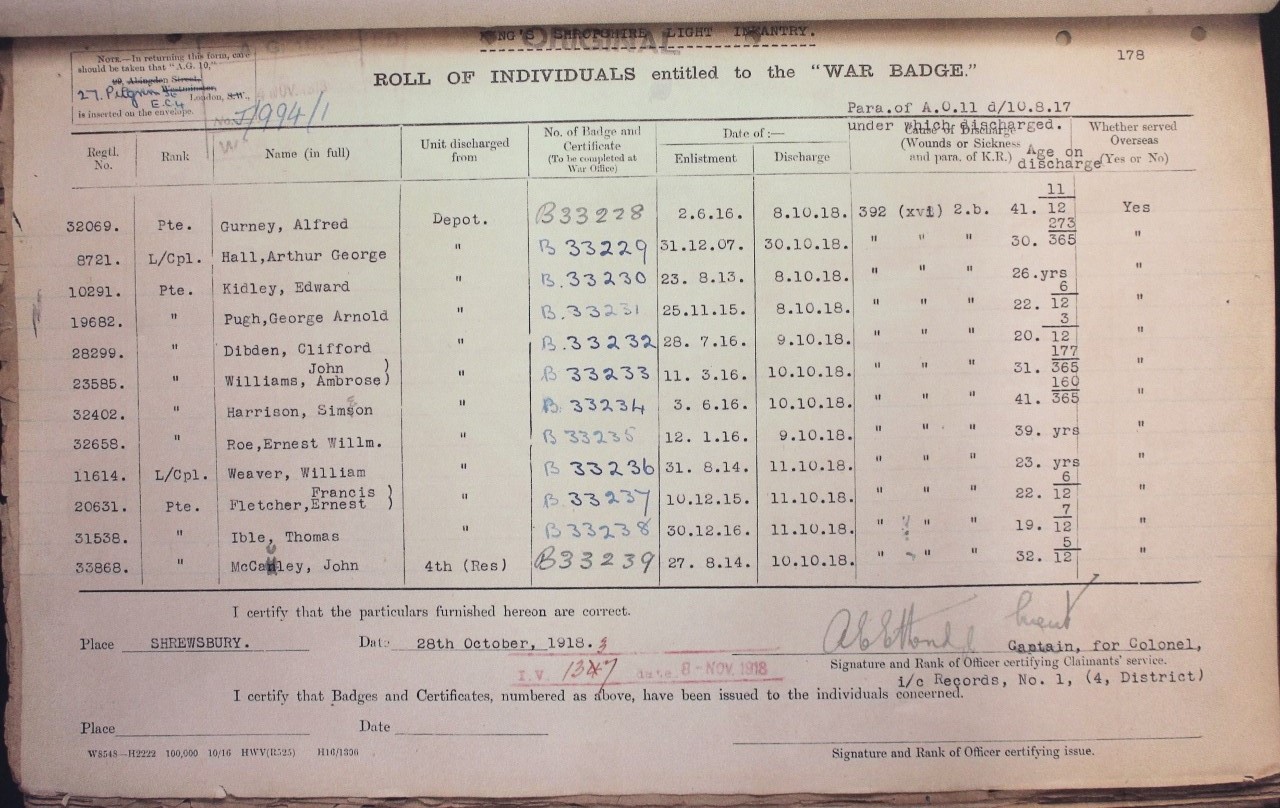 KING'S SHROPSHIRE LIGHT INFANTRY.
ORIGINAL
178
NOTE.—In returning this form, care
should be taken that "A.G. 10,"
99, Abingdon Street,
27. Pilgrim St Westminster,
E.C.4 London, S.W.,
is inserted on the envelope.
No. J/994/1
ROLL OF INDIVIDUALS entitled to the "WAR BADGE."
Para.of A.O.11 d/10.8.17
under which discharged.
Regtl. No. Rank Name (in full) Unit discharged from No. of Badge and Certificate (To be completed at War Office) Date of :— Enlistment Discharge Cause of Discharge (Wounds or Sickness and para. of K.R.) Age on discharge Whether served Overseas (Yes or No)
32069. Pte. Gurney, Alfred Depot. B33228 2.6.16. 8.10.18. 392 (xvi) 2.b. 41. 11/12 Yes
8721. L/Cpl. Hall,Arthur George " B 33229 31.12.07. 30.10.18. " " " 30. 273/365 "
10291. Pte. Kidley, Edward " B.33230 23. 8.13. 8.10.18. " " " 26.yrs "
19682. " Pugh,George Arnold " B.33231 25.11.15. 8.10.18. " " " 22. 6/12 "
28299. " Dibden, Clifford " B.33232 28. 7.16. 9.10.18. " " " 20. 3/12 "
23585. " Williams, John Ambrose) " B 33233 11. 3.16. 10.10.18. " " " 31. 177/365 "
32402. " Harrison, Simson " B. 33234 3. 6.16. 10.10.18. " " " 41. 160/365 "
32658. " Roe,Ernest Willm. " B 33235 12. 1.16. 9.10.18. " " " 39. yrs "
11614. L/Cpl. Weaver, William " B 33236 31. 8.14. 11.10.18. " " " 23. yrs "
20631. Pte. Fletcher, Francis Ernest ) " B 33237 10.12.15. 11.10.18. " " " 22. 6/12 "
31538. " Ible, Thomas " B33238 30.12.16. 11.10.18. " " " 19. 7/12 "
33868. " McCauley, John 4th (Res) B33239 27. 8.14. 10.10.18. " " " 32. 5/12 "
I certify that the particulars furnished hereon are correct.
Place SHREWSBURY. Date 28th October, 1918.
Captain, for Colonel,
Signature and Rank of Officer certifying Claimants' service.
i/c Records, No. 1, (4, District)
I.V. 1347 date 8-NOV.1918
I certify that Badges and Certificates, numbered as above, have been issued to the individuals concerned.
Place Date
Signature and Rank of Officer certifying issue.
W8548—H2222 100,000 10/16 HWV(R525) H16/1396